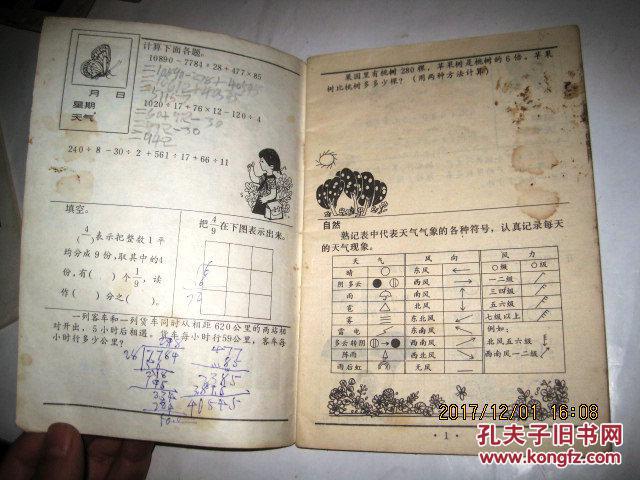 月 日
星期
天气
计算下面各题。
10890-7784÷28+477×85
1020÷17+76×12-120÷4
240÷8-30÷2+561÷17+66÷11
填空。
4/( )表示把整数1平
均分成9份,取其中的4
份,有( )个1/9,读
作( )分之( )。
把4/9在下图表示出来。
一列客车和一列货车同时从相距620公里的两站相
对开出,5小时后相遇。货车每小时行59公里,客车每
小时行多少公里?
477
85
2385
3816
40545
果园里有桃树280棵,苹果树是桃树的6倍。苹果
树比桃树多多少棵?(用两种方法计算)
自然
熟记表中代表天气气象的各种符号,认真记录每天
的天气现象。
天气 风向 风力
晴 东风 0级 0级
阴 多云 西风 一二级
雨 南风 三四级
雹 北风 五六级
雾 东北风 七级以上
雷电 东南风 例如:
多云转阴 西南风 北风五六级
阵雨 西北风 西南风一二级
雨后虹 无风
2017/12/01 16:08
·1·
孔夫子旧书网
www.kongfz.com